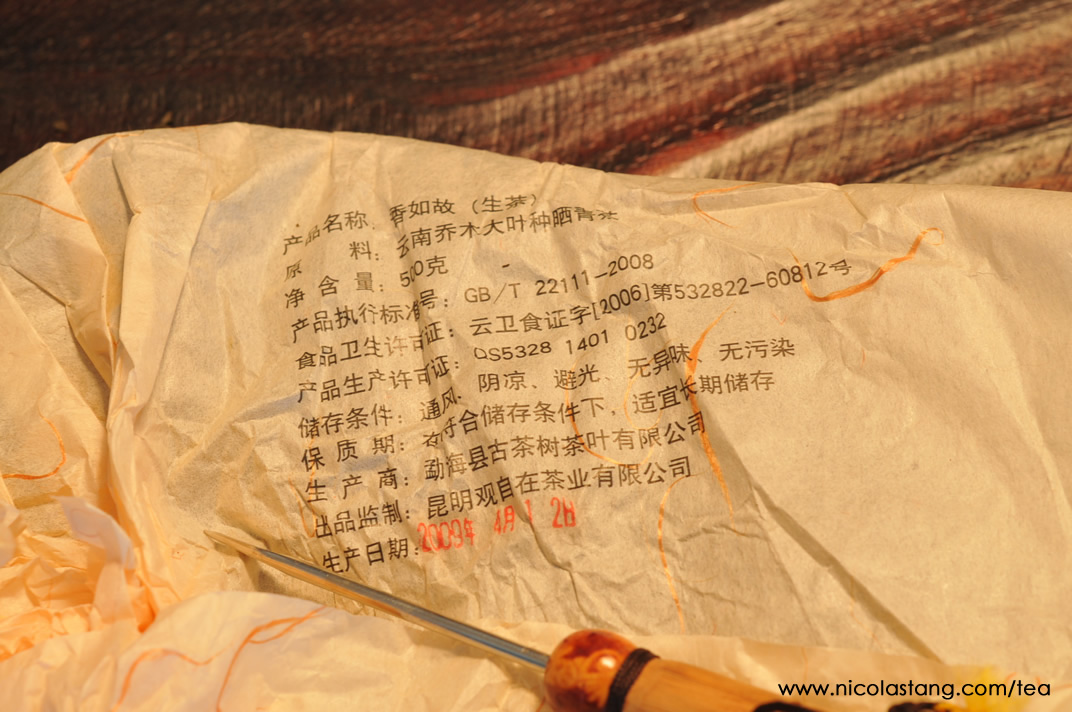 产品名称:香如故(生茶)
原 料:云南乔木大叶种晒青茶
净 含 量:500克
产品执行标准号:GB/T 22111-2008
食品卫生许可证:云卫食证字[2006]第532822-60812号
产品生产许可证:QS5328 1401 0232
储存条件:通风、阴凉、避光、无异味、无污染
保 质 期:在符合储存条件下,适宜长期储存
生 产 商:勐海县古茶树茶叶有限公司
出品监制:昆明观自在茶业有限公司
生产日期:2009年 4月 12日
www.nicolastang.com/tea